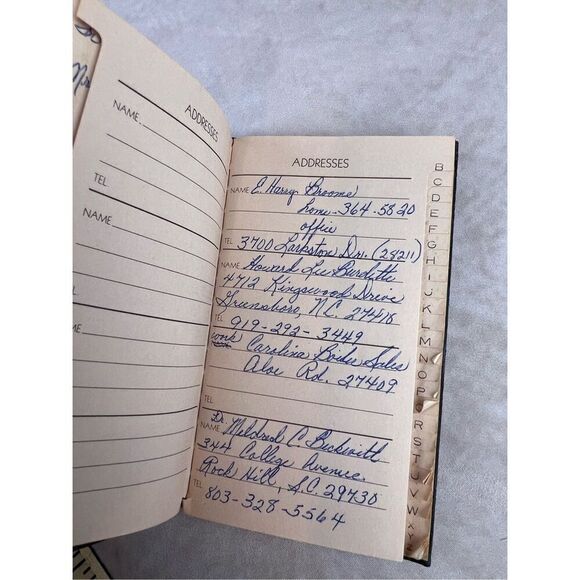 ADDRESSES
NAME
TEL
NAME
NAME
ADDRESSES
NAME E. Harry Broome
home - 364-5820
office
TEL 3700 Larkston Dr. (28211)
NAME Howard Lee Burditte
4712 Kingswood Drive
Greensboro, N.C. 27410
TEL 919-292-3449
work Carolina Boiler Sales
Aloe Rd. 27409
TEL
Dr.
NAME Mildred C. Beckwith
344 College Avenue
Rock Hill, S.C. 29730
TEL 803-328-5564
B
C
D
E
F
G
H
I
J
K
L
M
N
O
P
R
S
T
U
V
W
X
Y
Z